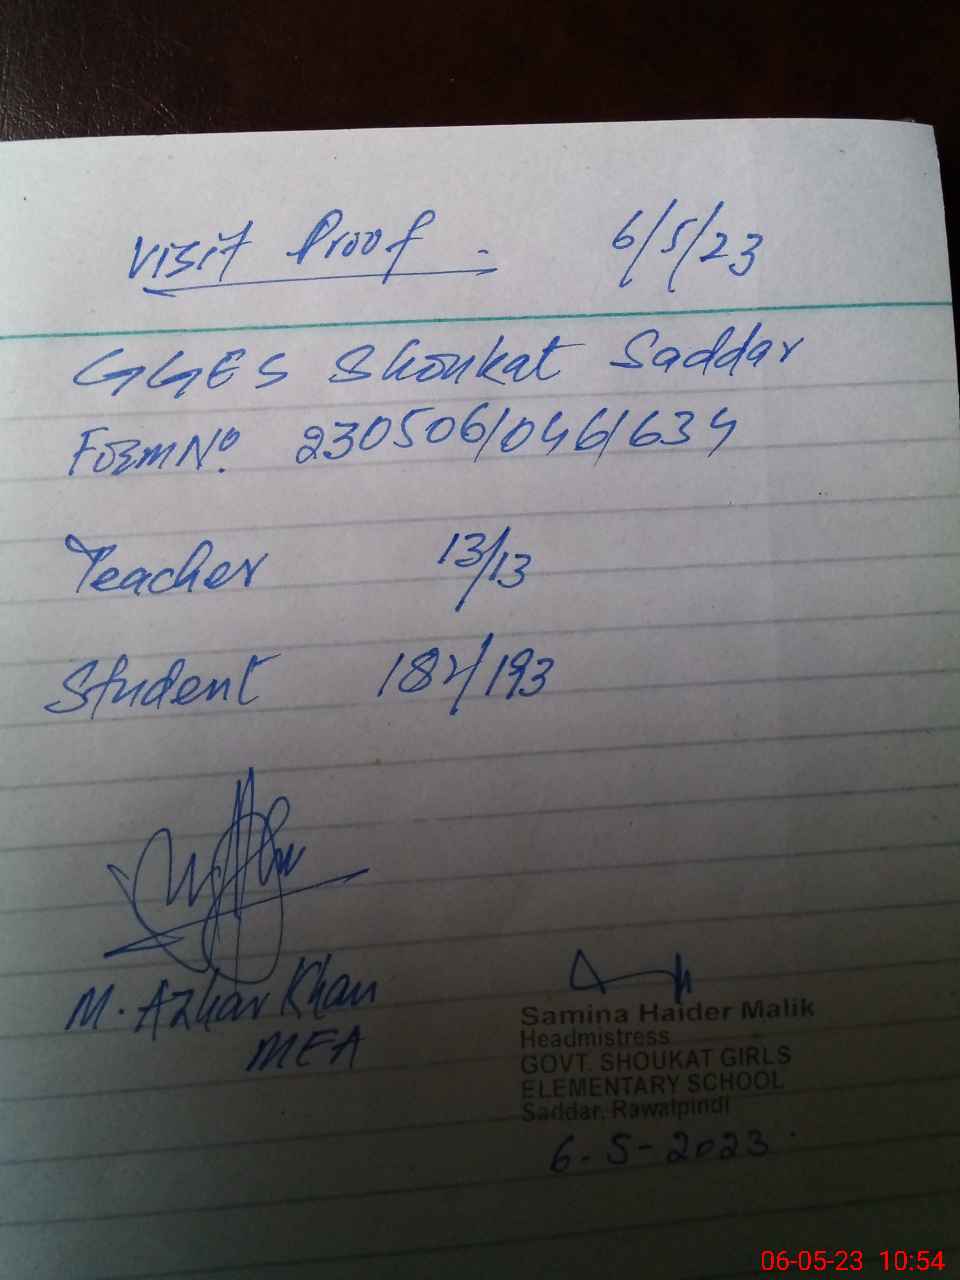 Visit Proof - 6/5/23
GGES Shoukat Saddar
Form No. 230506/046/634
Teacher 13/13
Student 182/193
M. Azhar Khan
MEA
Samina Haider Malik
Headmistress
GOVT. SHOUKAT GIRLS
ELEMENTARY SCHOOL
Saddar, Rawalpindi
6-5-2023
06-05-23 10:54